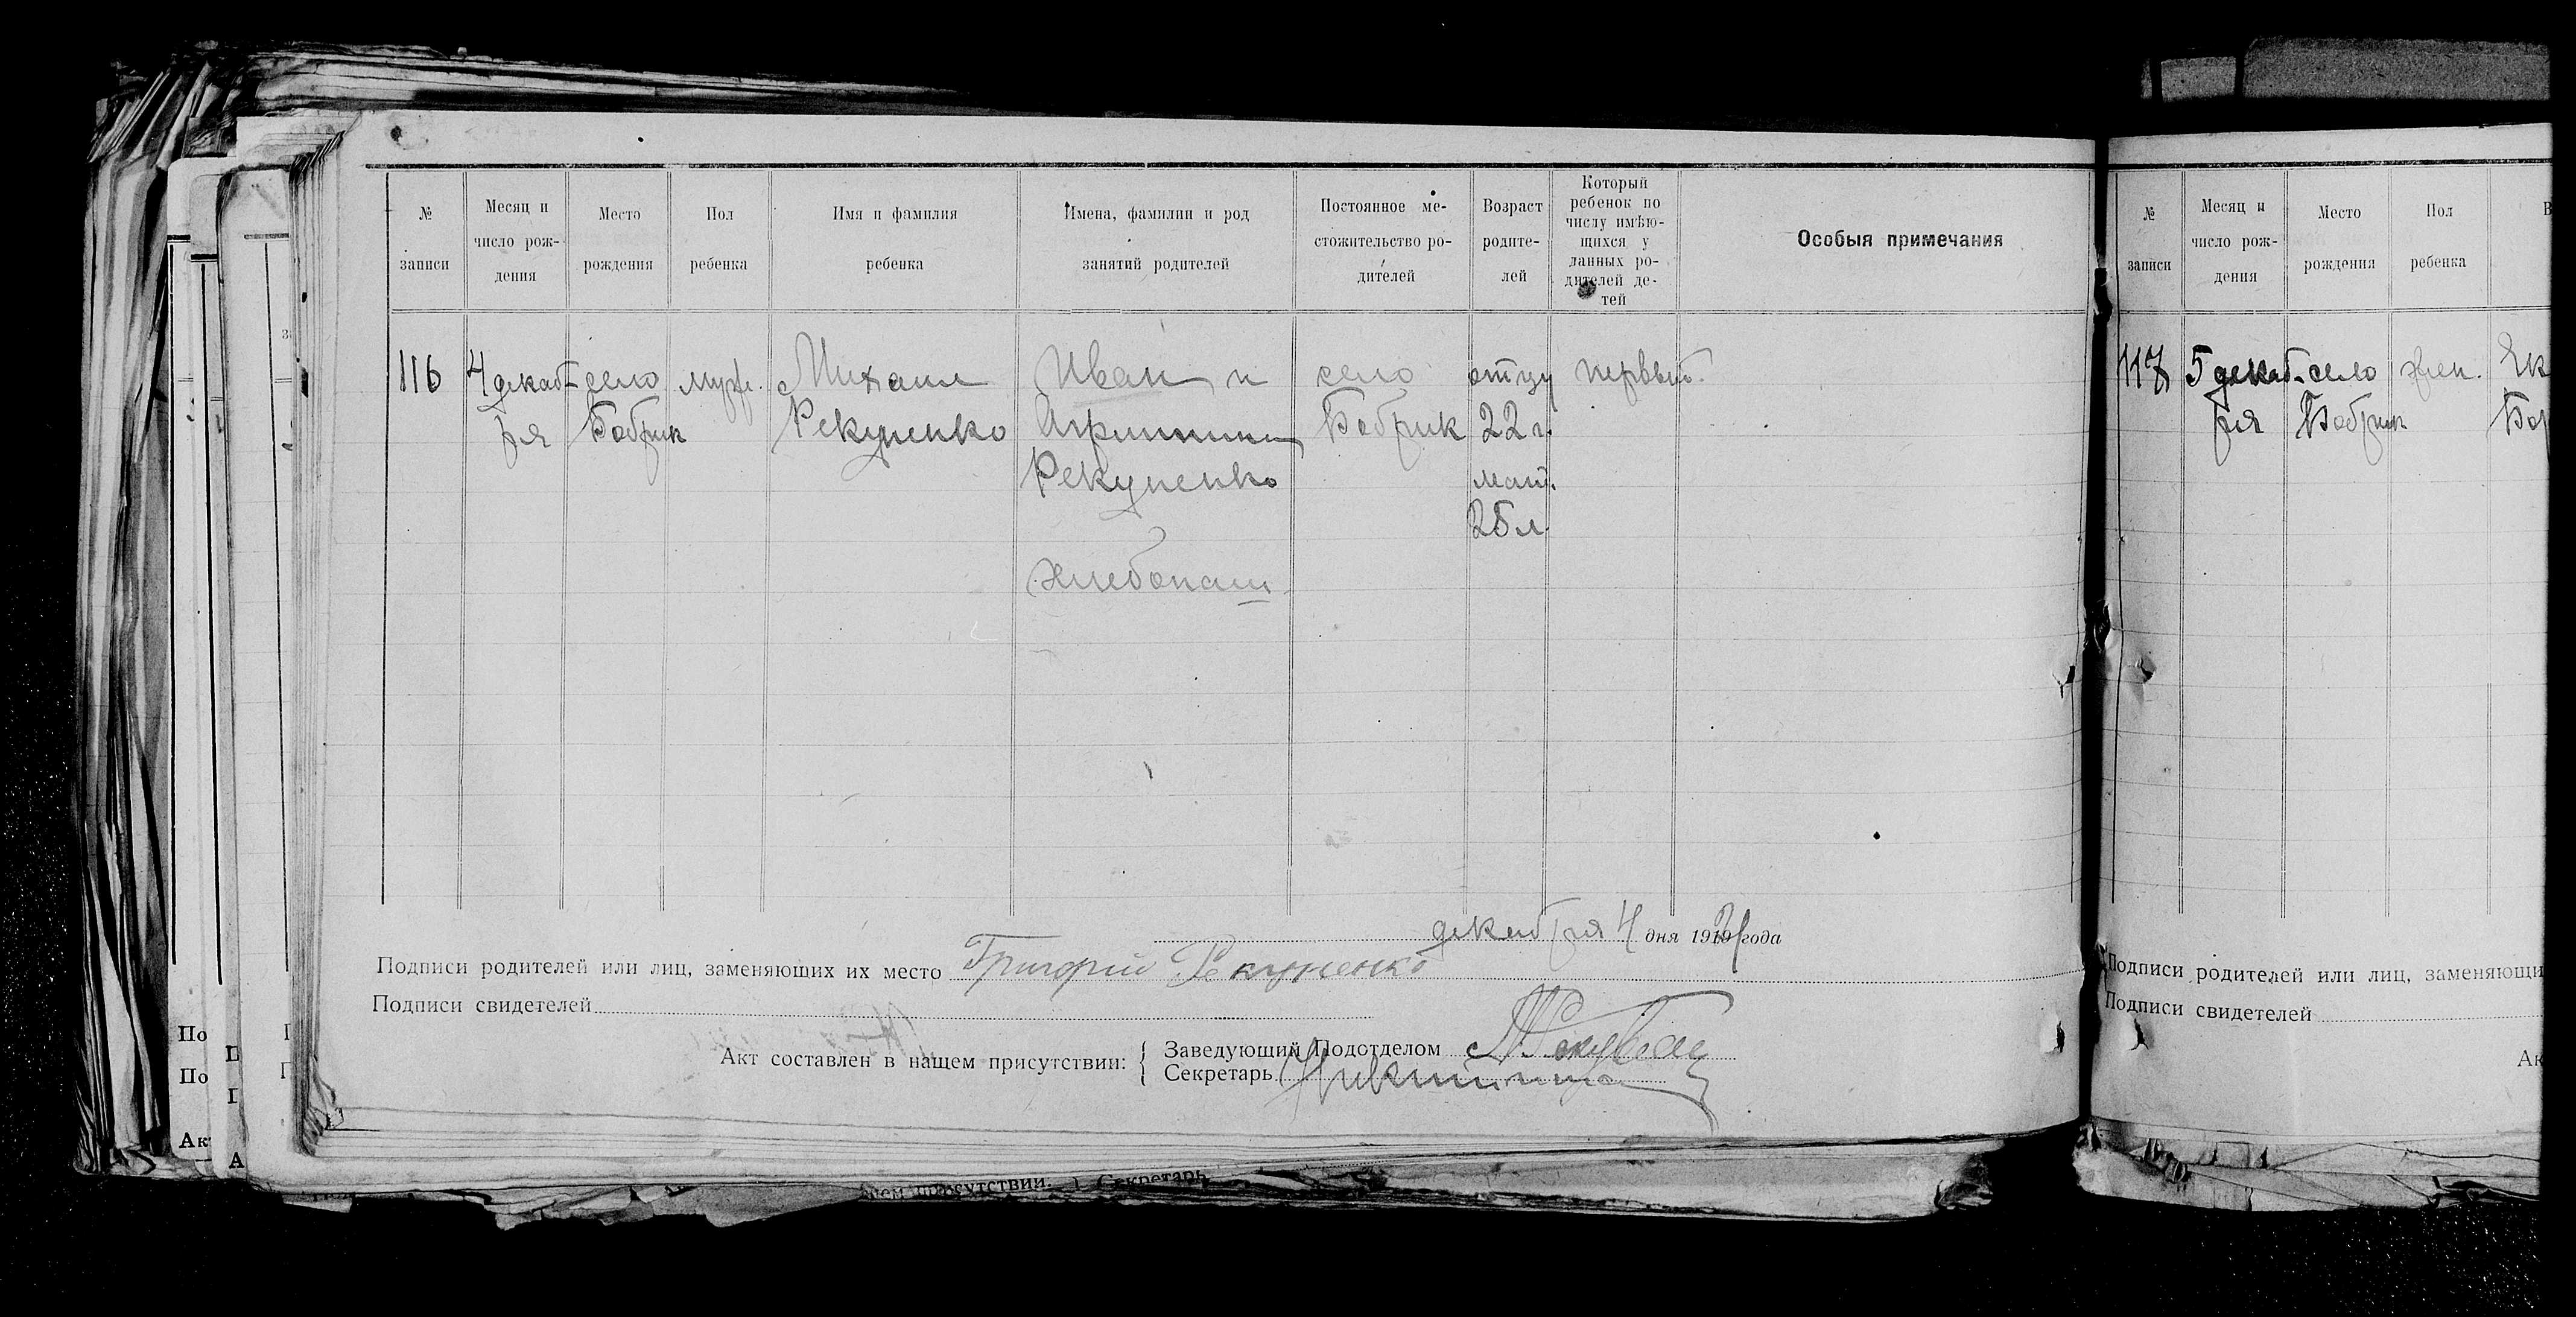 № записи
Месяц и число рож-дения
Место рождения
Пол ребенка
Имя и фамилия ребенка
Имена, фамилии и род занятий родителей
Постоянное ме-стожительство ро-дителей
Возраст родите-лей
Который ребенок по числу имѣю-щихся у данных ро-дителей де-тей
Особыя примечания
116
4 декаб-
ря
село
Бобрик
муж.
Михаил
Рекуненко
Иван и
Агриппина
Рекуненко
хлебопаш.
село
Бобрик
отцу
22 г.
мат.
25 л.
первый.
декабря 4 дня 1921 года
Подписи родителей или лиц, заменяющих их место Григорий Рекуненко
Подписи свидетелей
Акт составлен в нащем присутствии:
Заведующий Подотделом
Секретарь
№ записи
Месяц и число рож-дения
Место рождения
Пол ребенка
117
5 декаб-
ря
село
Бобрик
жен.
Ек
Бор
Подписи родителей или лиц, заменяющи
Подписи свидетелей
Ак
По
По
Ак
нем присутствии: Секретарь